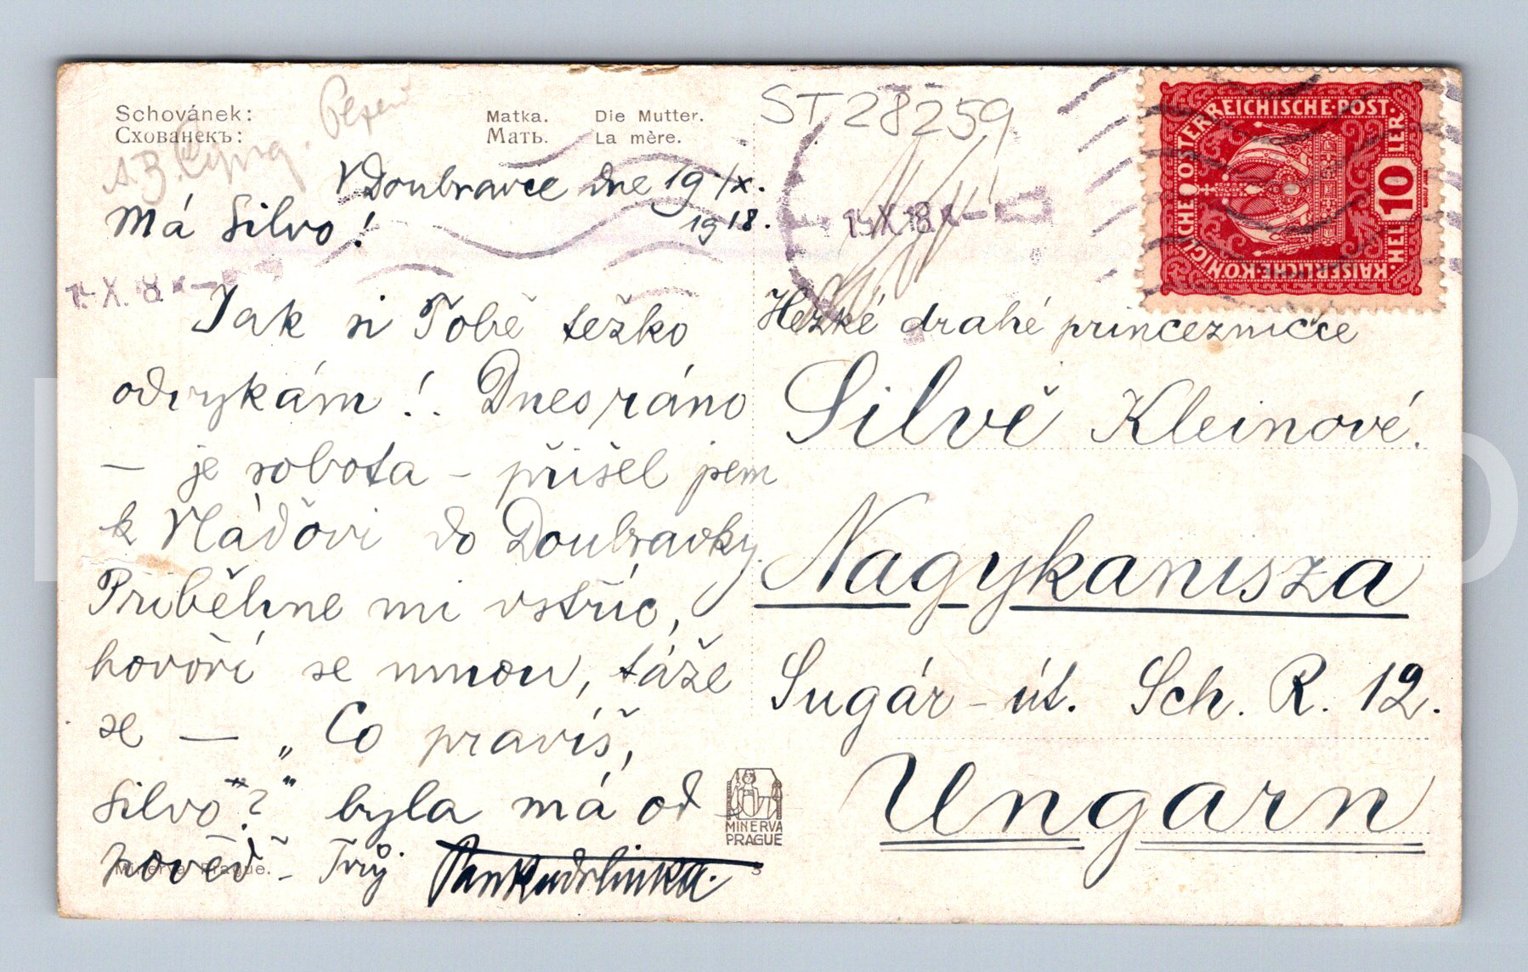 Schovánek:
Схованекъ:
Matka. Die Mutter.
Мать. La mère.
ST 28259
V Doubravce dne 19/IX.
1918.
Má Silvo!
Jak si Tobě těžko
odvykám!. Dnes ráno
— je sobota — přišel jsem
k Vláďovi do Doubravky.
Přiběhne mi vstříc,
hovoří se mnou, táže
se — „Co pravíš,
Silvo"?" byla má od
pověď - Tvůj
Minerva Prague.
MINERVA
PRAGUE
ÖSTERREICHISCHE·POST.
KAISERLICHE·KÖNIGLICHE
10 HELLER
Hezké drahé princezničce
Silvě Kleinové.
Nagykanisza
Sugár-út. Sch. R. 12.
Ungarn